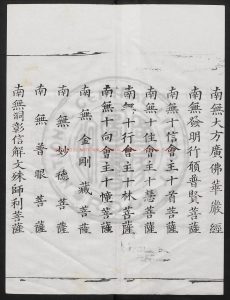 南無大方廣佛華嚴經
南無發明行願普賢菩薩
南無十信會主十首菩薩
南無十住會主十慧菩薩
南無十行會主十林菩薩
南無十向會主十幢菩薩
南無金剛藏菩薩
南無妙德菩薩
南無普眼菩薩
南無詞彰信解文殊師利菩薩